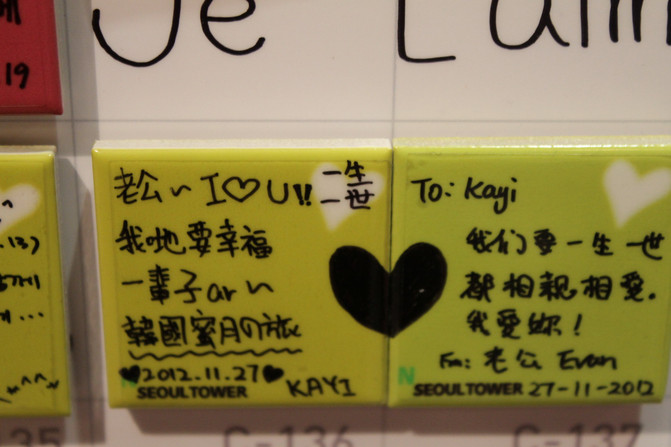 Je t'aim
19
老公~ I♡U!! 一生一世
我哋要幸福
一輩子ar~
韓國蜜月の旅
♥2012.11.27♥
SEOULTOWER KAYI
To: Kayi
我们要一生一世
都相親相愛.
我愛妳!
Fm: 老公 Evan
N
SEOULTOWER 27-11-2012
C-136
C-137